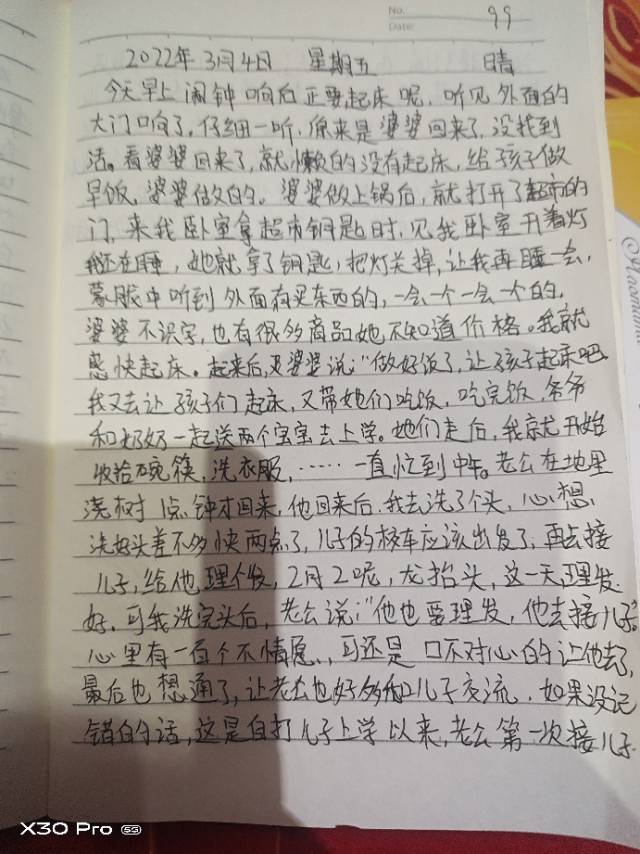 No. 99
Date:
2022年3月4日 星期五 晴
今天早上闹钟响后正要起床呢，听见外面的
大门响了，仔细一听，原来是婆婆回来了，没找到
活。看婆婆回来了，就懒的没有起床，给孩子做
早饭，婆婆做的。婆婆做上锅后，就打开了超市的
门，来我卧室拿超市钥匙时，见我卧室开着灯
我还在睡，她就拿了钥匙，把灯关掉，让我再睡一会，
蒙胧中听到外面有买东西的，一会一个一会一个的，
婆婆不识字，也有很多商品她不知道价格。我就
感快起床。起来后，婆婆说："做好饭了，让孩子起床吧。
我又去让孩子们起床，又带她们吃饭，吃完饭，爷爷
和奶奶一起送两个宝宝去上学。她们走后，我就开始
收拾碗筷，洗衣服，……一直忙到中午。老公在地里
浇树1点钟才回来，他回来后，我去洗了个头，心想，
洗好头差不多快两点了，儿子的校车应该出发了，再去接
儿子，给他理个发，2月2呢，龙抬头，这一天理发
好。可我洗完头后，老公说："他也要理发，他去接儿子"。
心里有一百个不情愿，可还是口不对心的让他去了，
最后也想通了，让老公也好多和儿子交流，如果没记
错的话，这是自打儿子上学以来，老公第一次接儿子
X30 Pro 5G